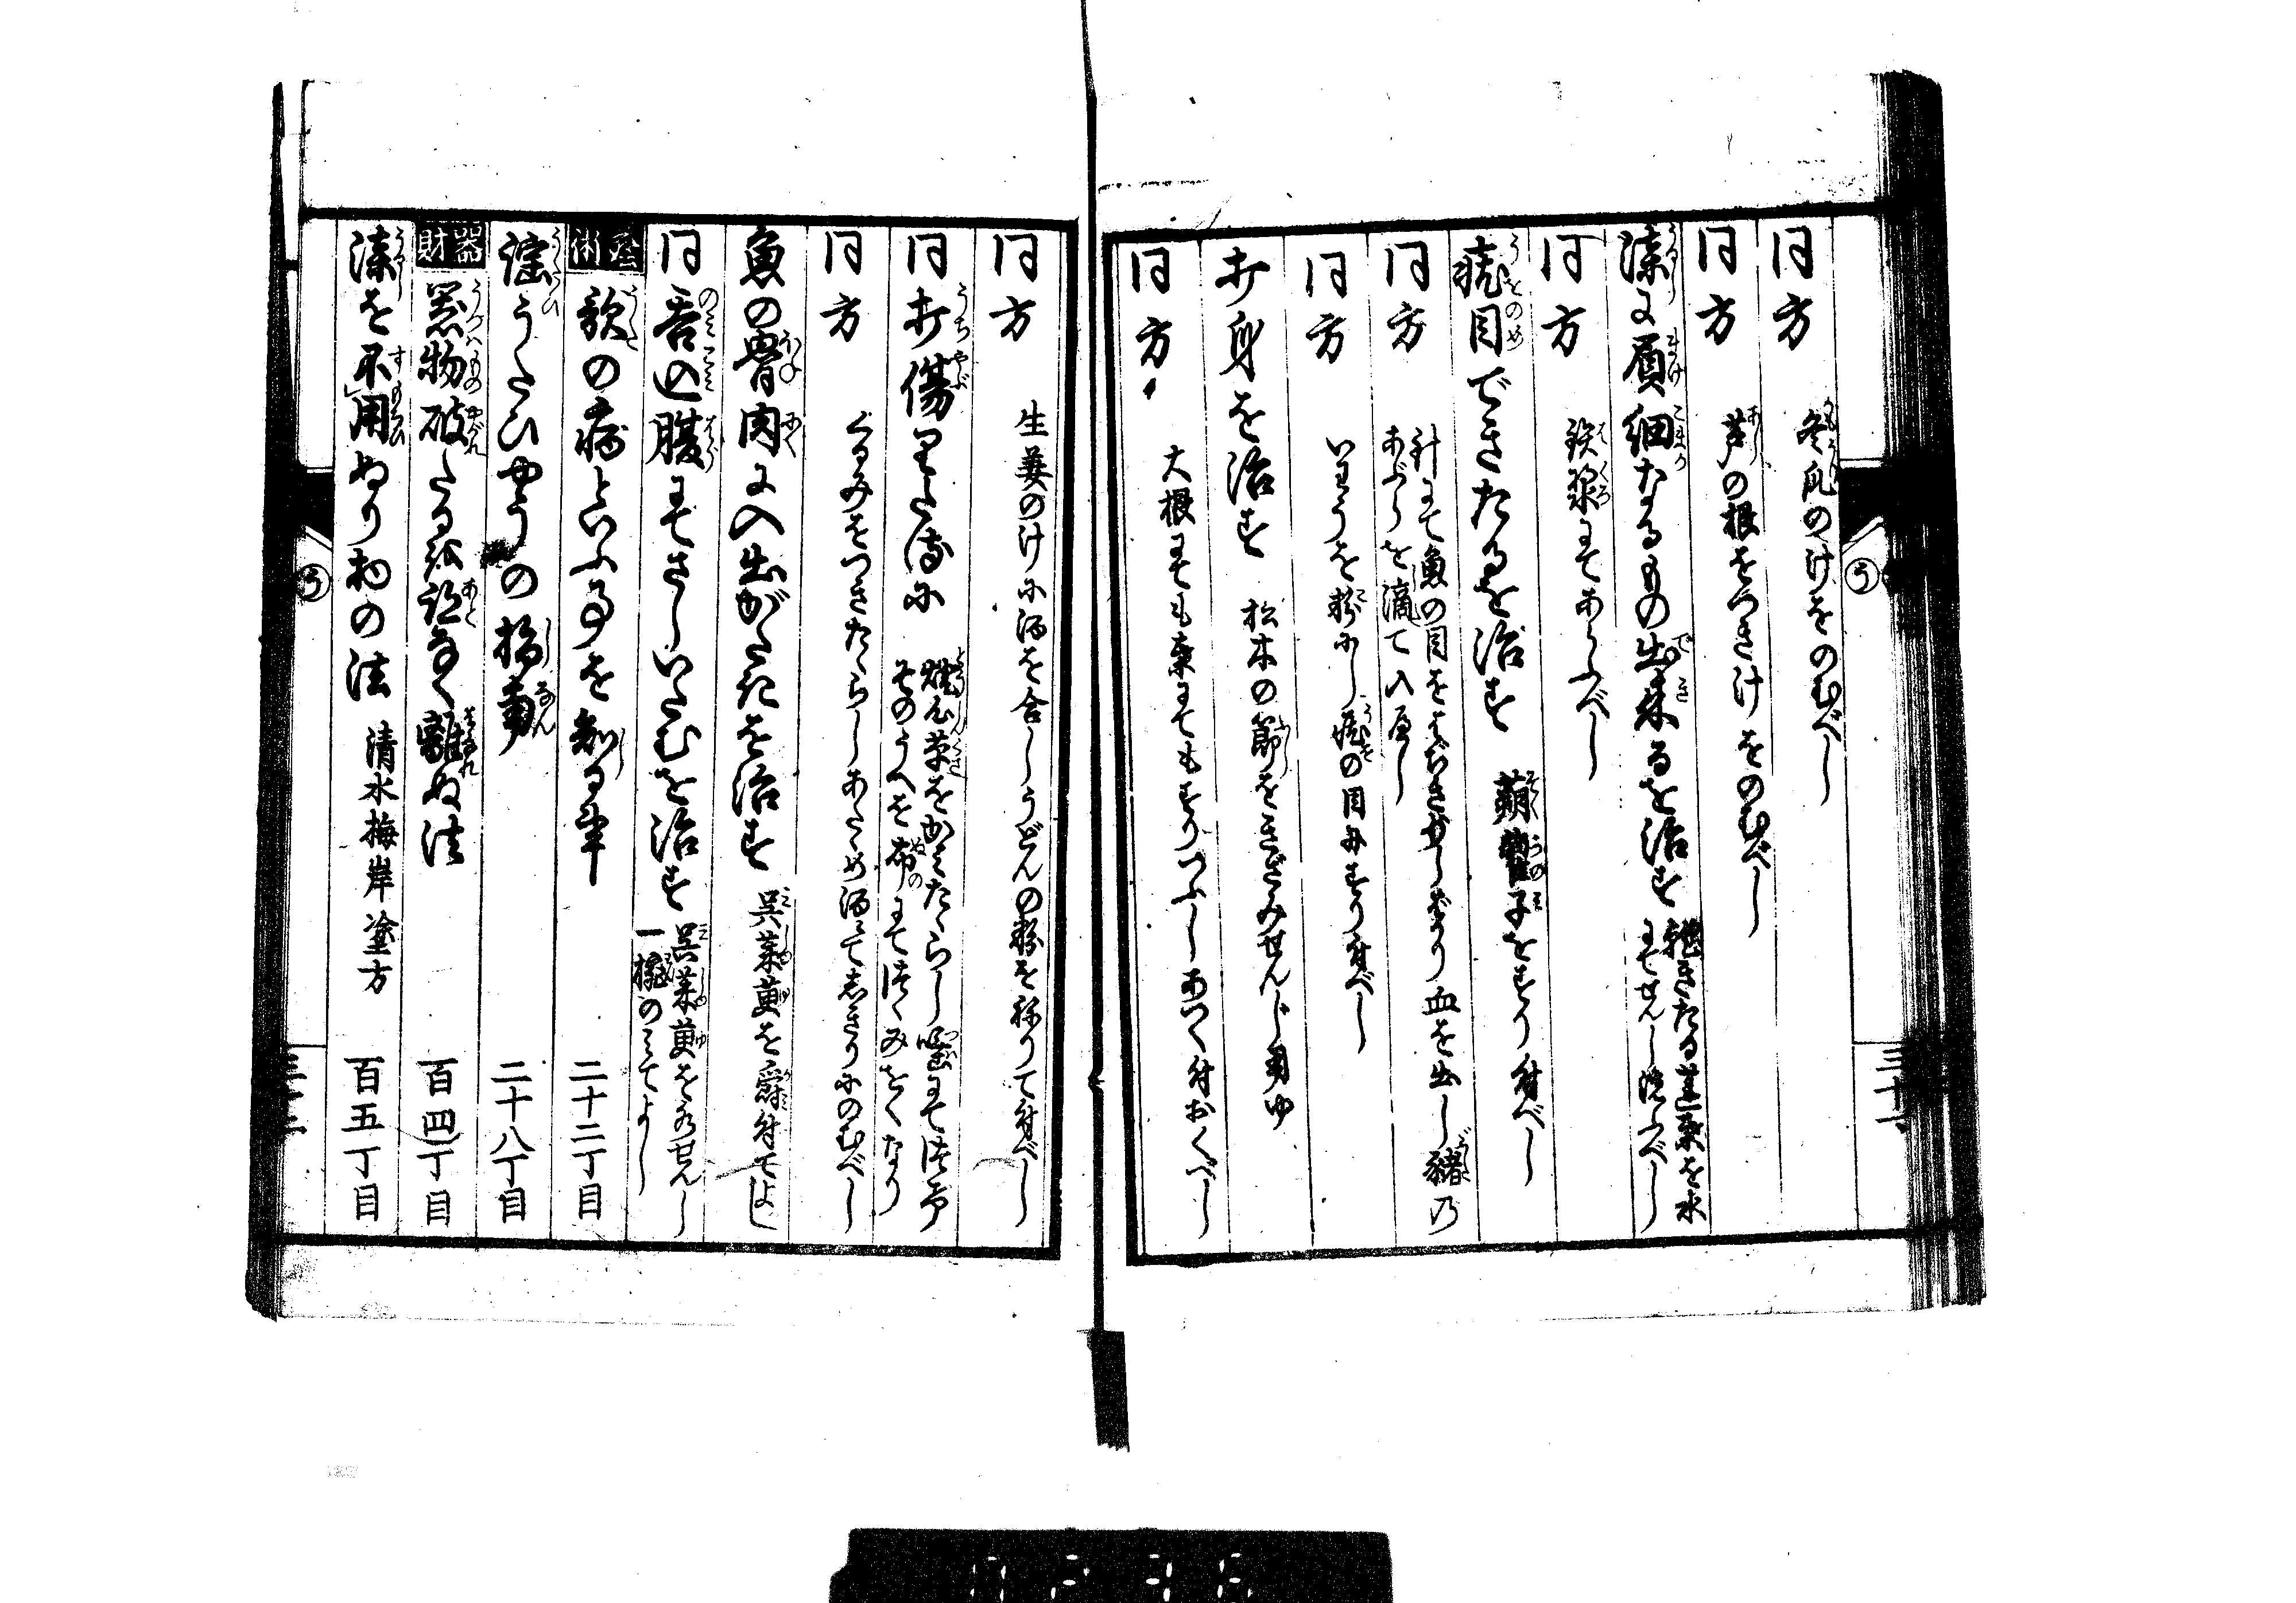 同方 冬瓜のしげをのむべし
同方 芦の根をつきけをのむべし
漆に負細なるもの出来るを治す
乾きたる蓮葉を水
にてせんじ洗ふべし
同方 鉄漿にてあらふべし
疣目できたるを治す 蒴藋子をすり付べし
同方 針にて魚の目をはぢきやぶり血を出し猪の
あぶらを滴て入べし
同方 いわうを粉にし疣の目にすり付べし
打身を治す 松木の節をきざみせんじ用ゆ
同方 大根にても葉にてもすりつぶしあつく付おくべし
う
三十一
同方 生姜のけに酒を合しうどんの粉をねりて付べし
同打傷りたるに
燈心草をかみたゞらし唾にて付
そのうへを布にてつゝみをくなり
同方 くるみをつきたゞらしあたゝめ酒にてしきりにのむべし
魚の骨肉に入出がたきを治す 呉茱萸を爵付てよし
同吞込腹にてさしいたむを治す
呉茱萸を水せんじ
一椀のみてよし
歌の病といふ事を知る事 二十二丁目
謡うたひやうの指南 二十八丁目
器財 器物破たる跡なく離ぬ法 百四丁目
漆を不用ぬり物の法 清水梅岸塗方 百五丁目
う